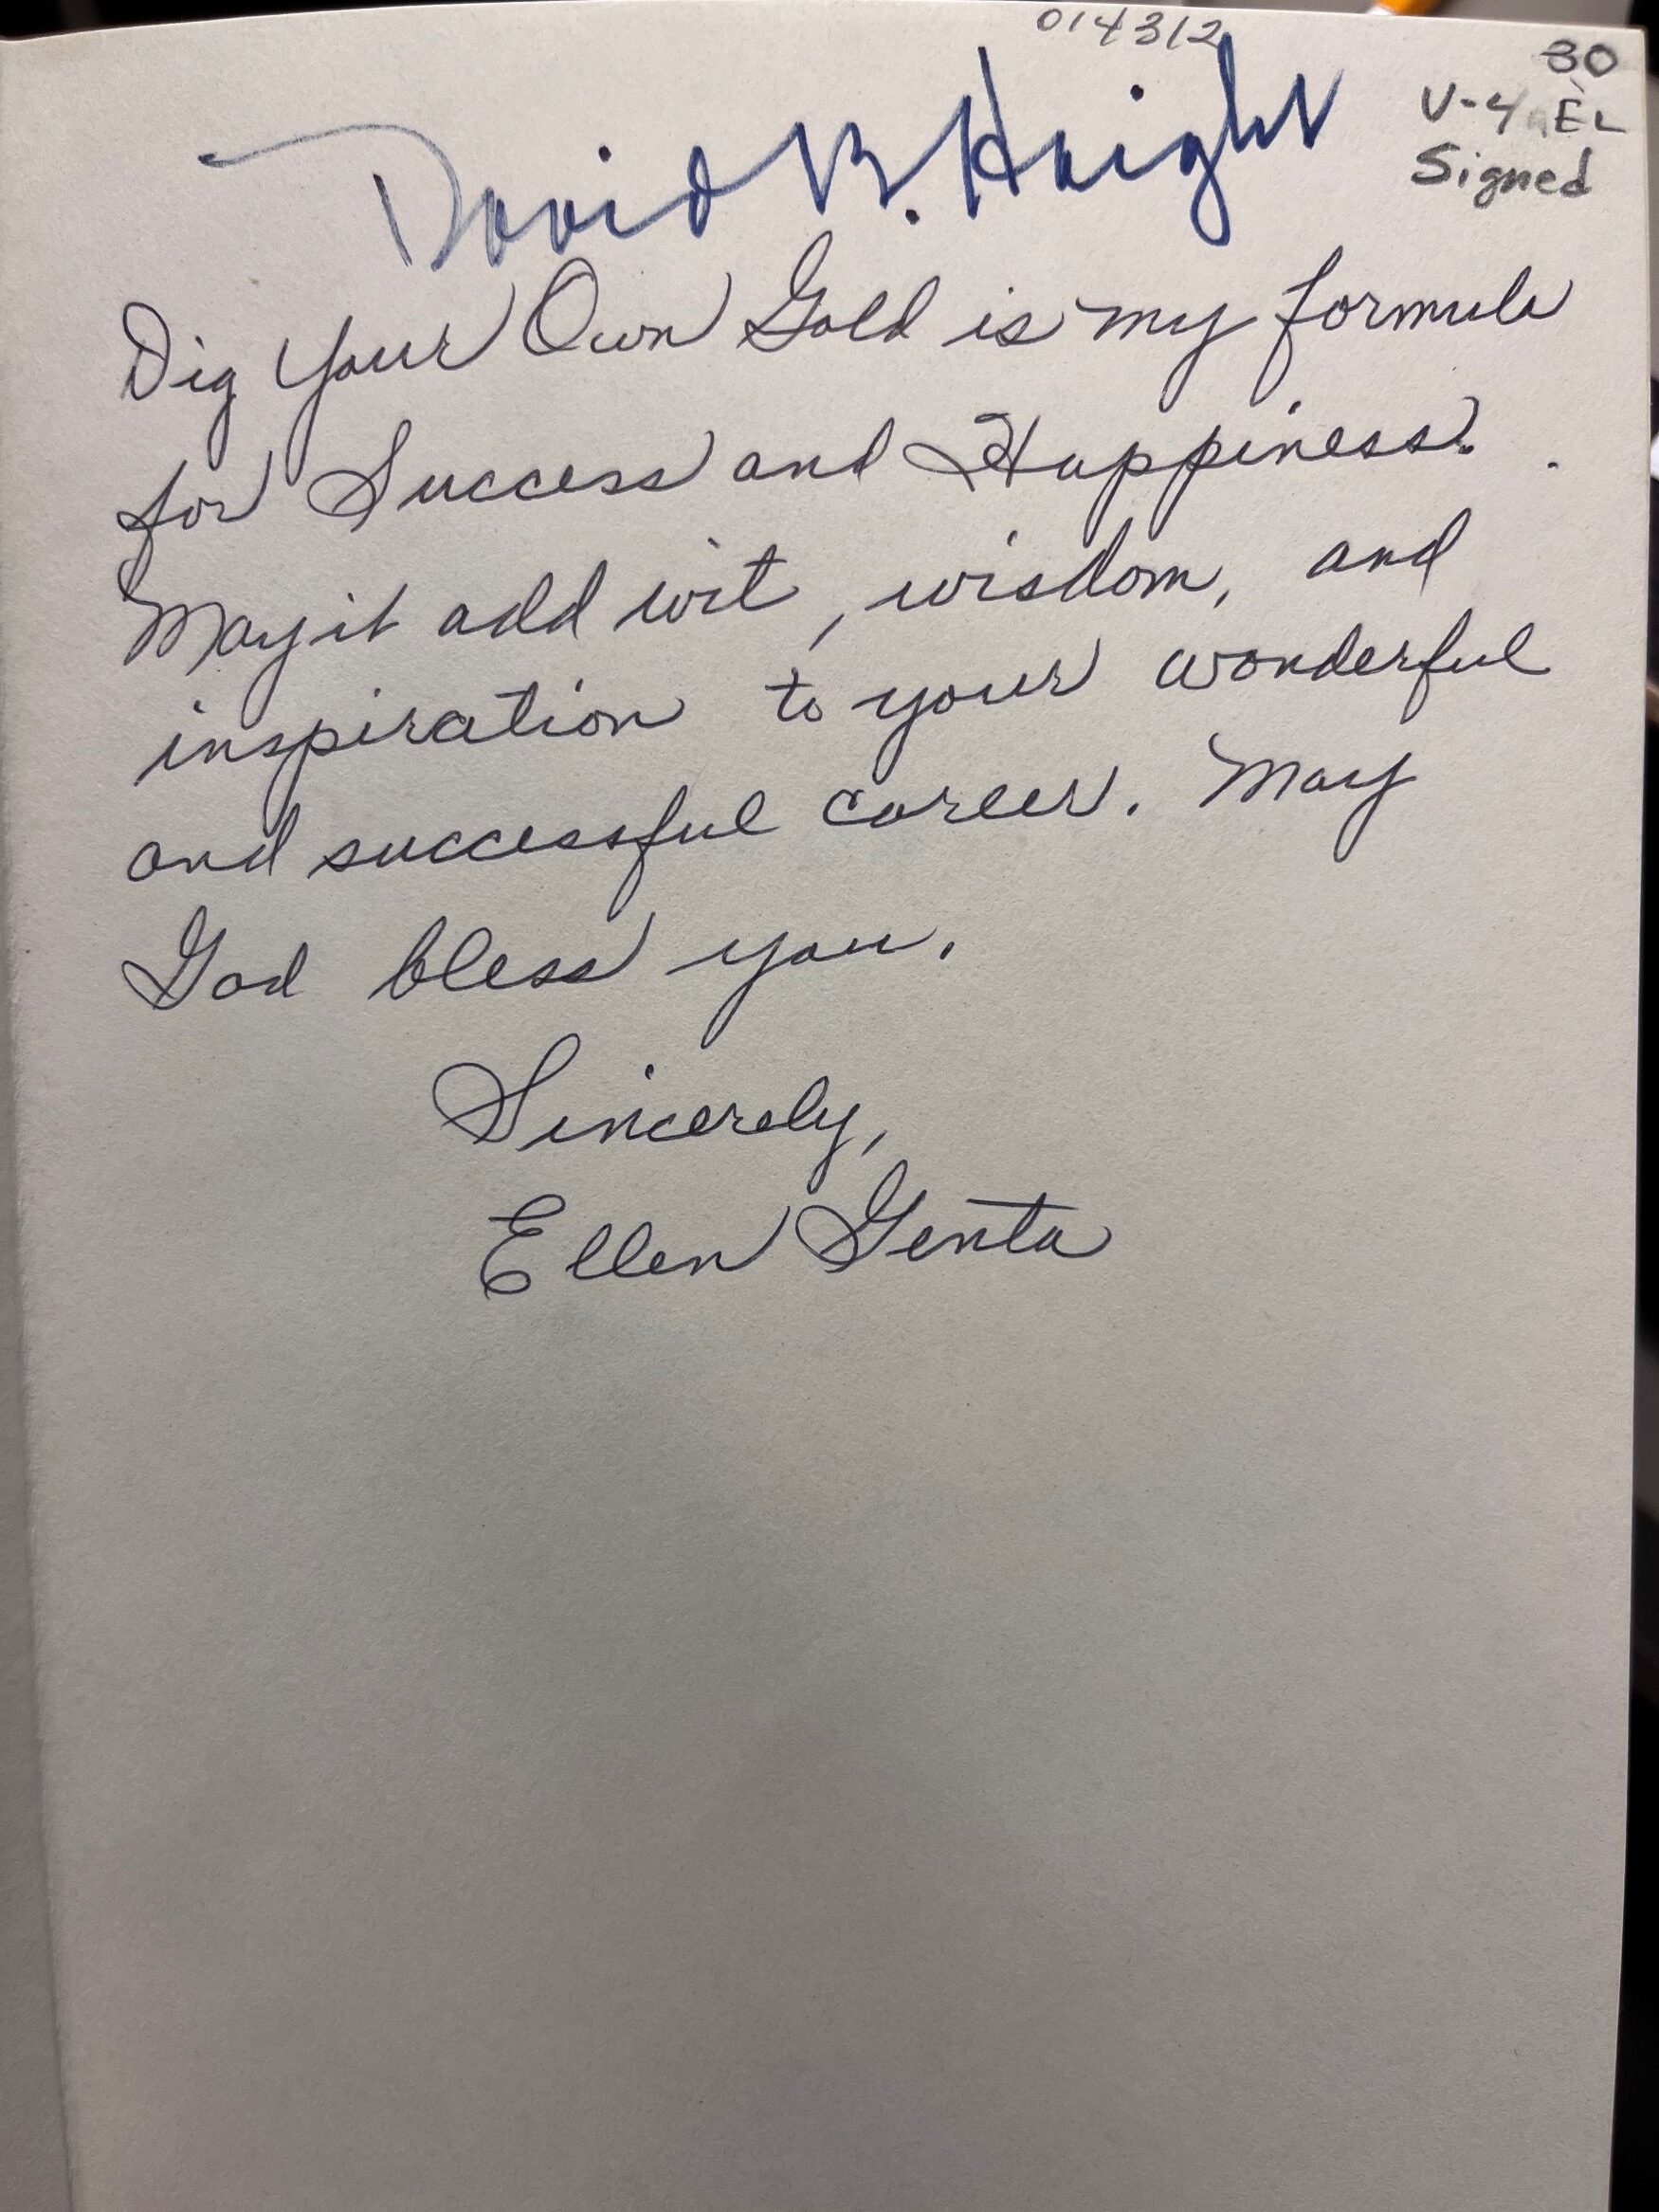 014312
30
V-4 EL
Signed
David B. Haight
Dig Your Own Gold is my formula
for Success and Happiness.
May it add wit, wisdom, and
inspiration to your wonderful
and successful career. May
God bless you.
Sincerely,
Ellen Genta